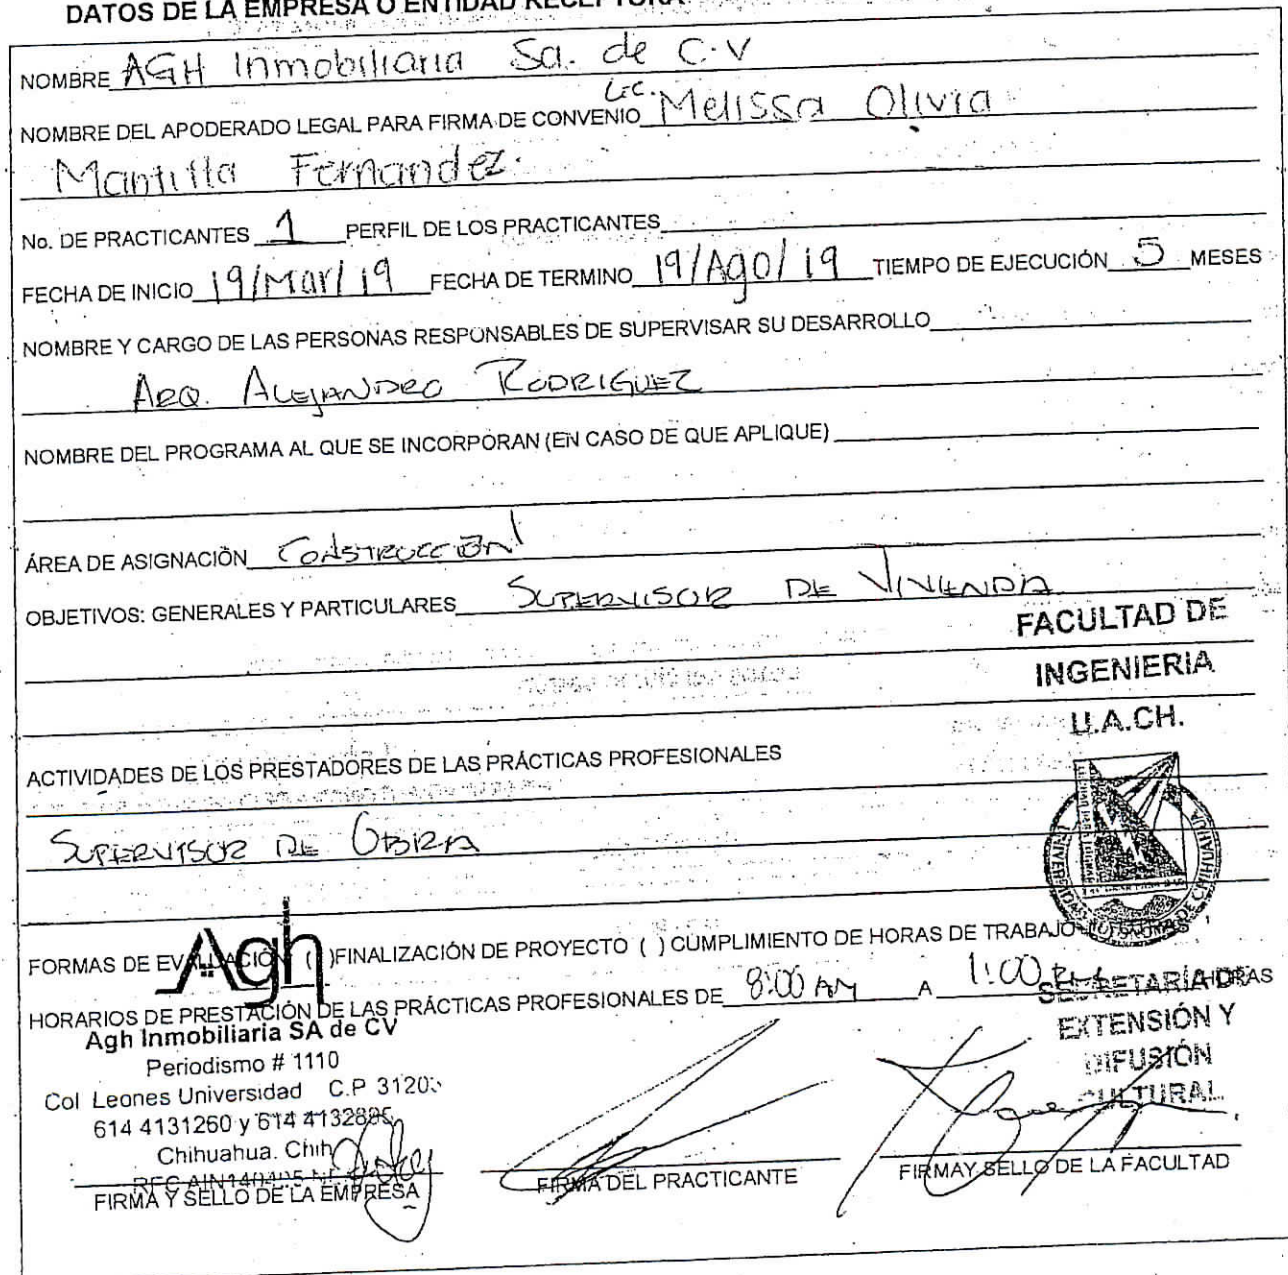 DATOS DE LA EMPRESA O ENTIDAD RECEPTORA
NOMBRE AGH Inmobiliaria Sa. de C.V
NOMBRE DEL APODERADO LEGAL PARA FIRMA DE CONVENIO Lic. Melissa Olivia
Mantilla Fernandez.
No. DE PRACTICANTES 1 PERFIL DE LOS PRACTICANTES
FECHA DE INICIO 19/Mar/19 FECHA DE TERMINO 19/Ago/19 TIEMPO DE EJECUCIÓN 5 MESES
NOMBRE Y CARGO DE LAS PERSONAS RESPONSABLES DE SUPERVISAR SU DESARROLLO
ARQ. ALEJANDRO RODRIGUEZ
NOMBRE DEL PROGRAMA AL QUE SE INCORPORAN (EN CASO DE QUE APLIQUE)
ÁREA DE ASIGNACIÓN CONSTRUCCIÓN
OBJETIVOS: GENERALES Y PARTICULARES SUPERVISOR DE VIVIENDA
FACULTAD DE
INGENIERIA
U.A.CH.
ACTIVIDADES DE LOS PRESTADORES DE LAS PRÁCTICAS PROFESIONALES
SUPERVISOR DE OBRA
Agh
FORMAS DE EVALUACIÓN ( )FINALIZACIÓN DE PROYECTO ( ) CUMPLIMIENTO DE HORAS DE TRABAJO
HORARIOS DE PRESTACIÓN DE LAS PRÁCTICAS PROFESIONALES DE 8:00 AM A 1:00 HORAS
SECRETARÍA DE
EXTENSIÓN Y
DIFUSIÓN
CULTURAL
Agh Inmobiliaria SA de CV
Periodismo # 1110
Col Leones Universidad C.P 31205
614 4131260 y 614 4132895
Chihuahua. Chih
FIRMA Y SELLO DE LA EMPRESA
FIRMA DEL PRACTICANTE
FIRMAY SELLO DE LA FACULTAD